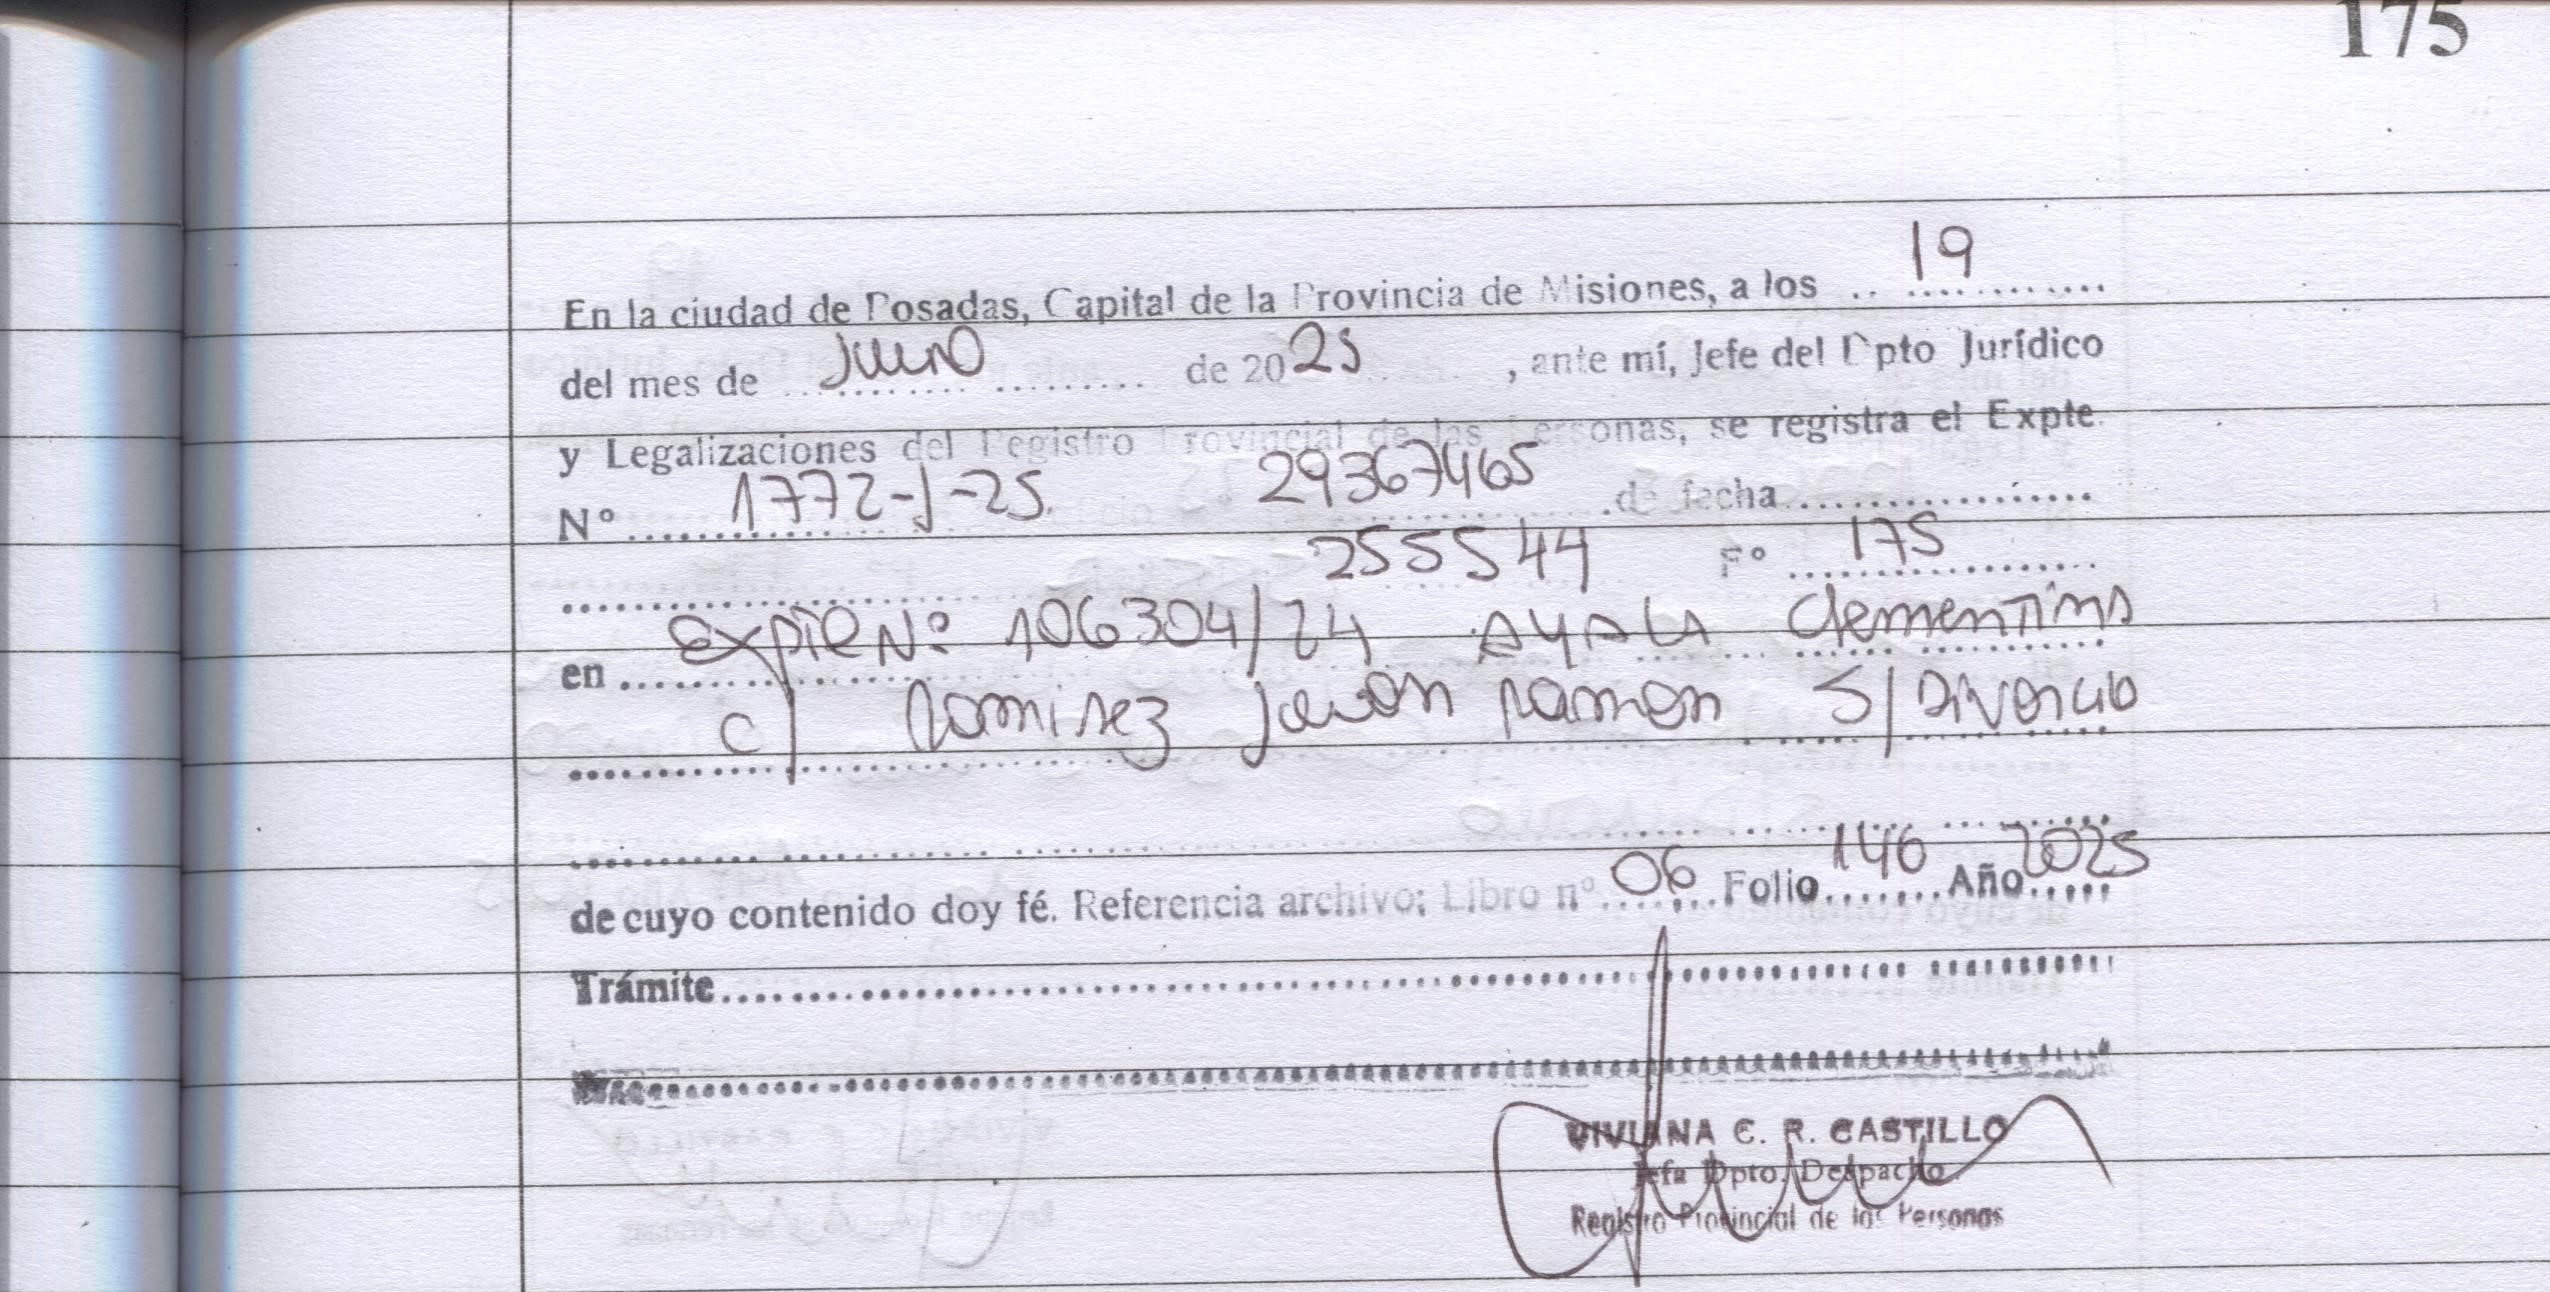 175
En la ciudad de Posadas, Capital de la Provincia de Misiones, a los 19
del mes de Junio de 2025, ante mí, Jefe del Dpto Jurídico
y Legalizaciones del Registro Provincial de las Personas, se registra el Expte.
Nº 1772-J-25. 29367465 de fecha
255544 Fº 175
en Expte Nº 106304/24 AYALA Clementina
c/ Ramirez Juan Ramon S/ Divorcio
de cuyo contenido doy fé. Referencia archivo; Libro nº 06 Folio 146 Año 2025
Trámite
VIVIANA C. R. CASTILLO
Jefa Dpto. Despacho
Registro Provincial de las Personas